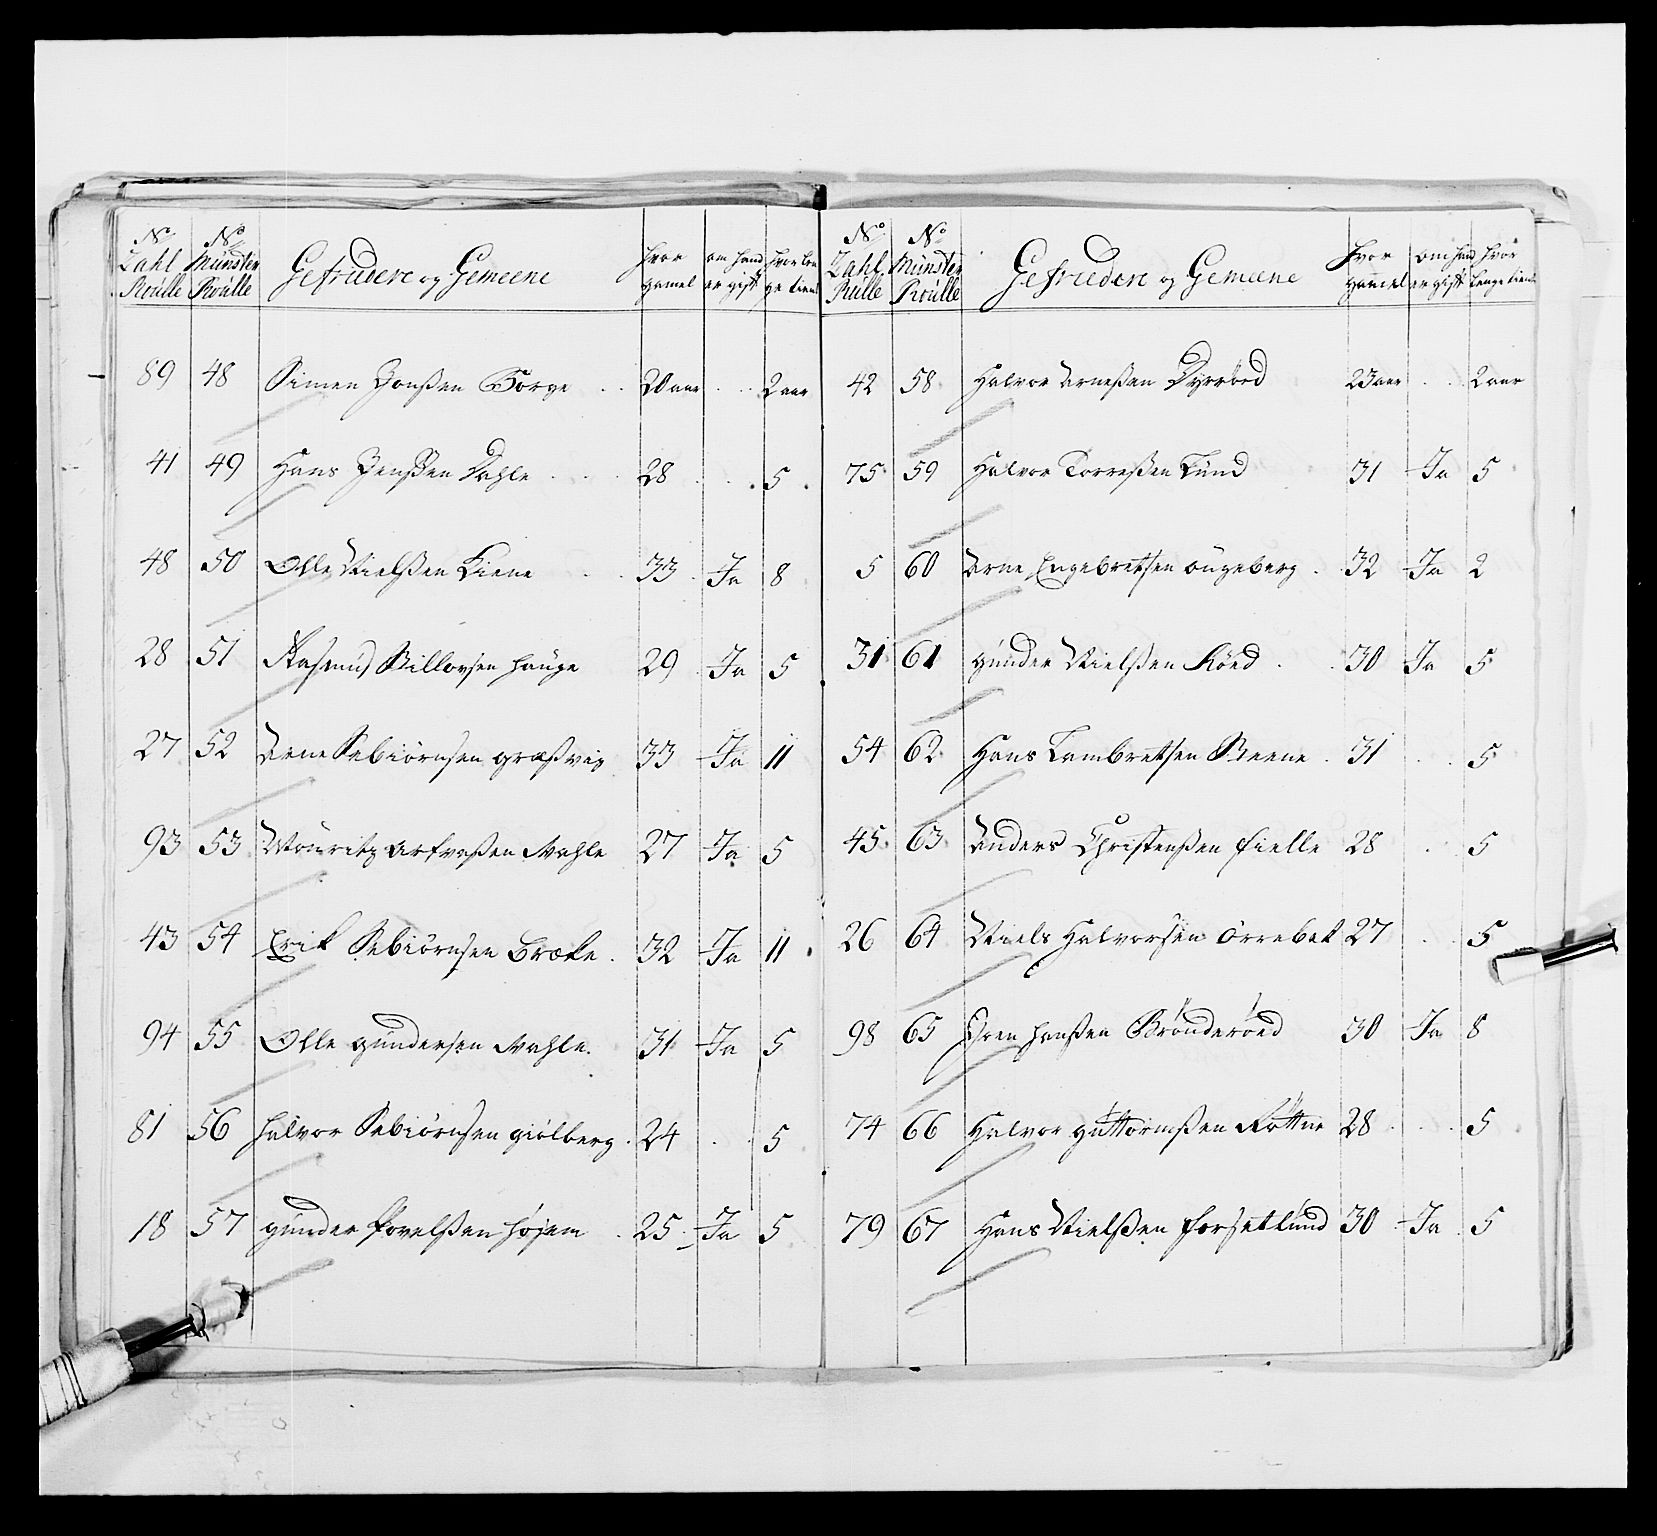 No Zahl Roulle | No Munster Roulle | Gefriedere og Gemeene | Hvor gamel | om hand er gift | hvor lenge tient
89 | 48 | Simen Jonßen Borge | 20 aar | | 2 aar
41 | 49 | Hans Jenßen Dahle | 28 | | 5
48 | 50 | Olle Nielßen Liene | 33 | Ja | 8
28 | 51 | Rasmus Killovsen Hauge | 29 | Ja | 5
27 | 52 | Arne Sebiörnsen græßvig | 33 | Ja | 11
93 | 53 | Mouritz Arfveßen Wahle | 27 | Ja | 5
43 | 54 | Erik Sebiörnsen Bræke | 32 | Ja | 11
94 | 55 | Olle gundersen Wahle | 31 | Ja | 5
81 | 56 | Halvor Sebiörnsen giölberg | 24 | | 5
18 | 57 | gunder Povelßen Højem | 25 | Ja | 5
No Zahl Rulle | No Munster Roulle | Gefriedere og Gemeene | Hvor gamel | om hand er gift | hvor lenge tient
42 | 58 | Halvor Arneßen Dyrröd | 23 aar | | 2 aar
75 | 59 | Halvor Torreßen Lund | 31 | Ja | 5
5 | 60 | Arne Engebretsen ougeberg | 32 | Ja | 2
31 | 61 | gunder Nielßen Röed | 30 | Ja | 5
54 | 62 | Hans Lambretsen | 31 | | 5
45 | 63 | Anders Christenßen fielle | 28 | | 5
26 | 64 | Niels Halvorsen örrebek | 27 | | 5
98 | 65 | Sören Hanßen Brönderöed | 30 | Ja | 8
74 | 66 | Halvor guttormßen Röttne | 28 | | 5
79 | 67 | Hans Nielßen Forsetlund | 30 | Ja | 5